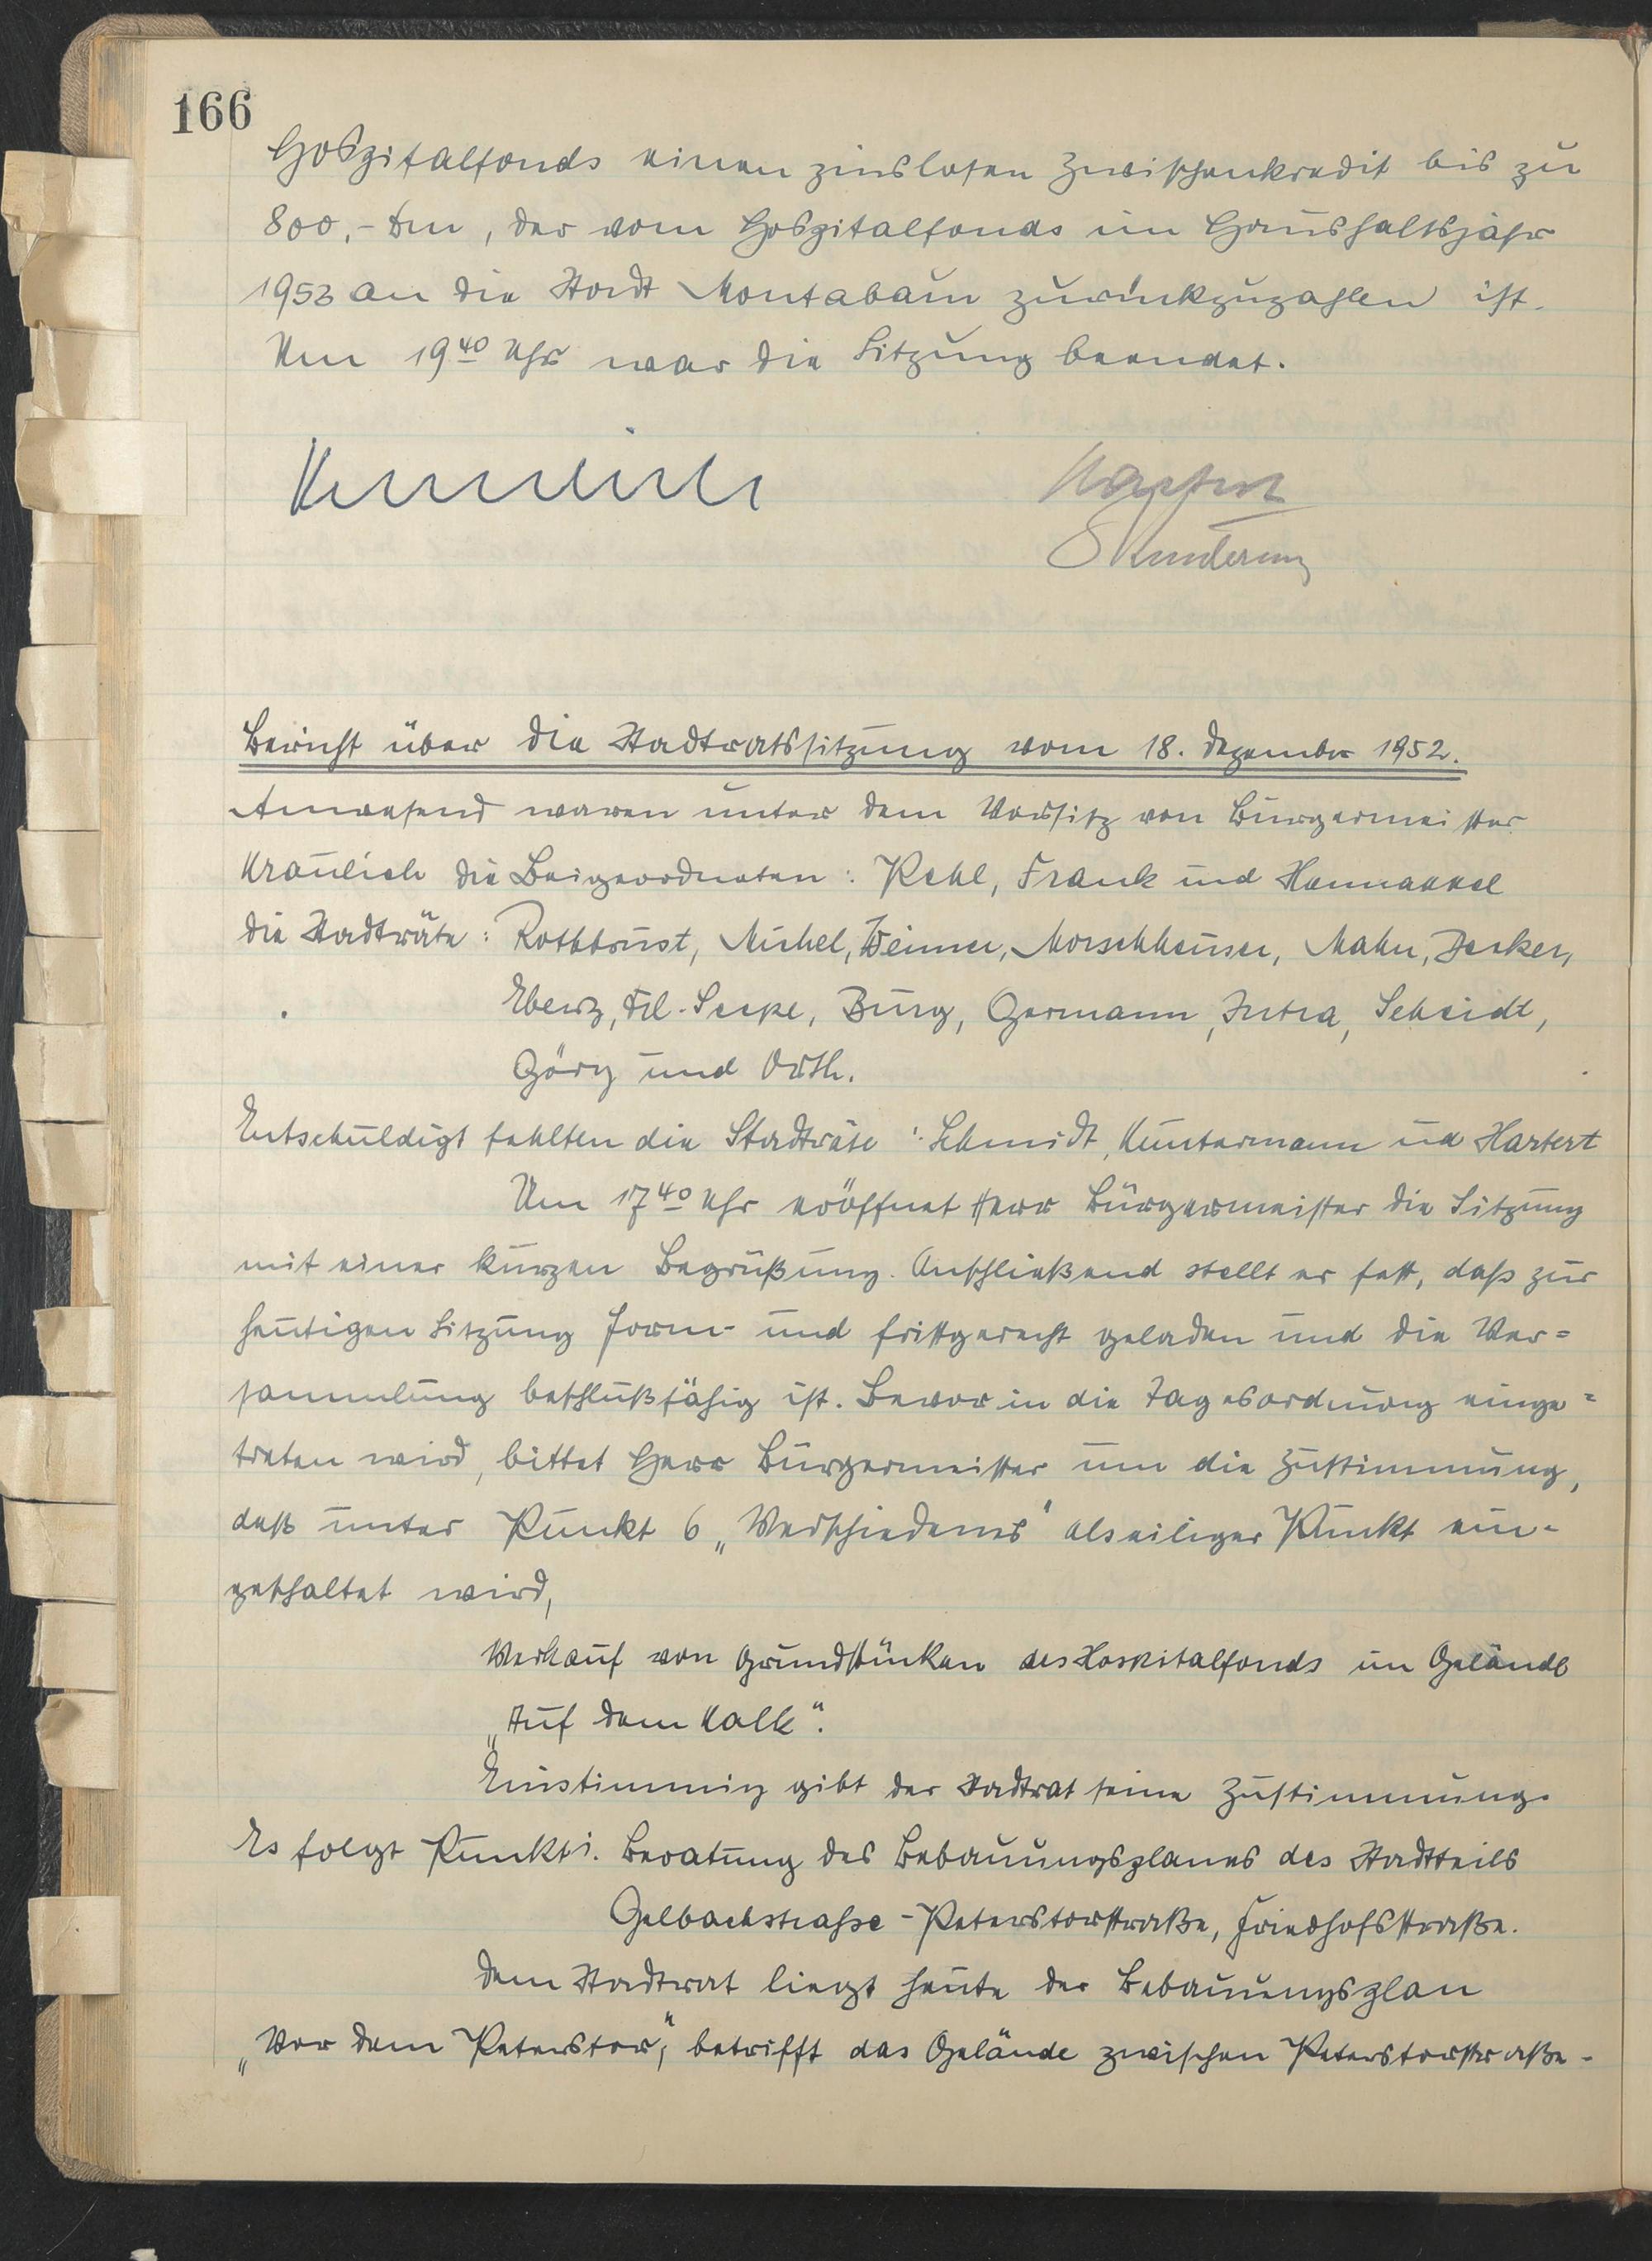 166
Hospitalfonds einen zinslosen Zwischenkredit bis zu
800,- Dm, der vom Hospitalfonds im Haushaltsjahr
1953 an die Stadt Montabaur zurückzuzahlen ist.
Um 19 40 Uhr war die Sitzung beendet.
Kraulich Hartert
Kuntermann
Bericht über die Stadtratssitzung vom 18. Dezember 1952.
Anwesend waren unter dem Vorsitz von Bürgermeister
Kraulich die Beigeordneten: Rehl, Frank und Hannappel
die Stadträte: Rothbrust, Michel, Weimer, Morschhäuser, Mahn, Decker,
Eberz, Frl. Seepe, Burg, Germann, Intra, Scheidt,
Görg und Orth.
Entschuldigt fehlten die Stadträte: Schmidt, Kuntermann und Hartert
Um 17 40 Uhr eröffnet Herr Bürgermeister die Sitzung
mit einer kurzen Begrüßung. Anschließend stellt er fest, daß zur
heutigen Sitzung form- und fristgerecht geladen und die Ver=
sammlung beschlußfähig ist. Bevor in die Tagesordnung einge=
treten wird, bittet Herr Bürgermeister um die Zustimmung,
daß unter Punkt 6 „Verschiedenes" als eiliger Punkt ein-
geschaltet wird,
Verkauf von Grundstücken des Hospitalfonds im Gelände
„Auf dem Kalk".
Einstimmig gibt der Stadtrat seine Zustimmung.
Es folgt Punkt 1. Beratung des Bebauungsplanes des Stadtteils
Gelbachstrasse - Peterstorstraße, Friedhofsstraße.
Dem Stadtrat liegt heute der Bebauungsplan
„Vor dem Peterstor", betrifft das Gelände zwischen Peterstorstraße -